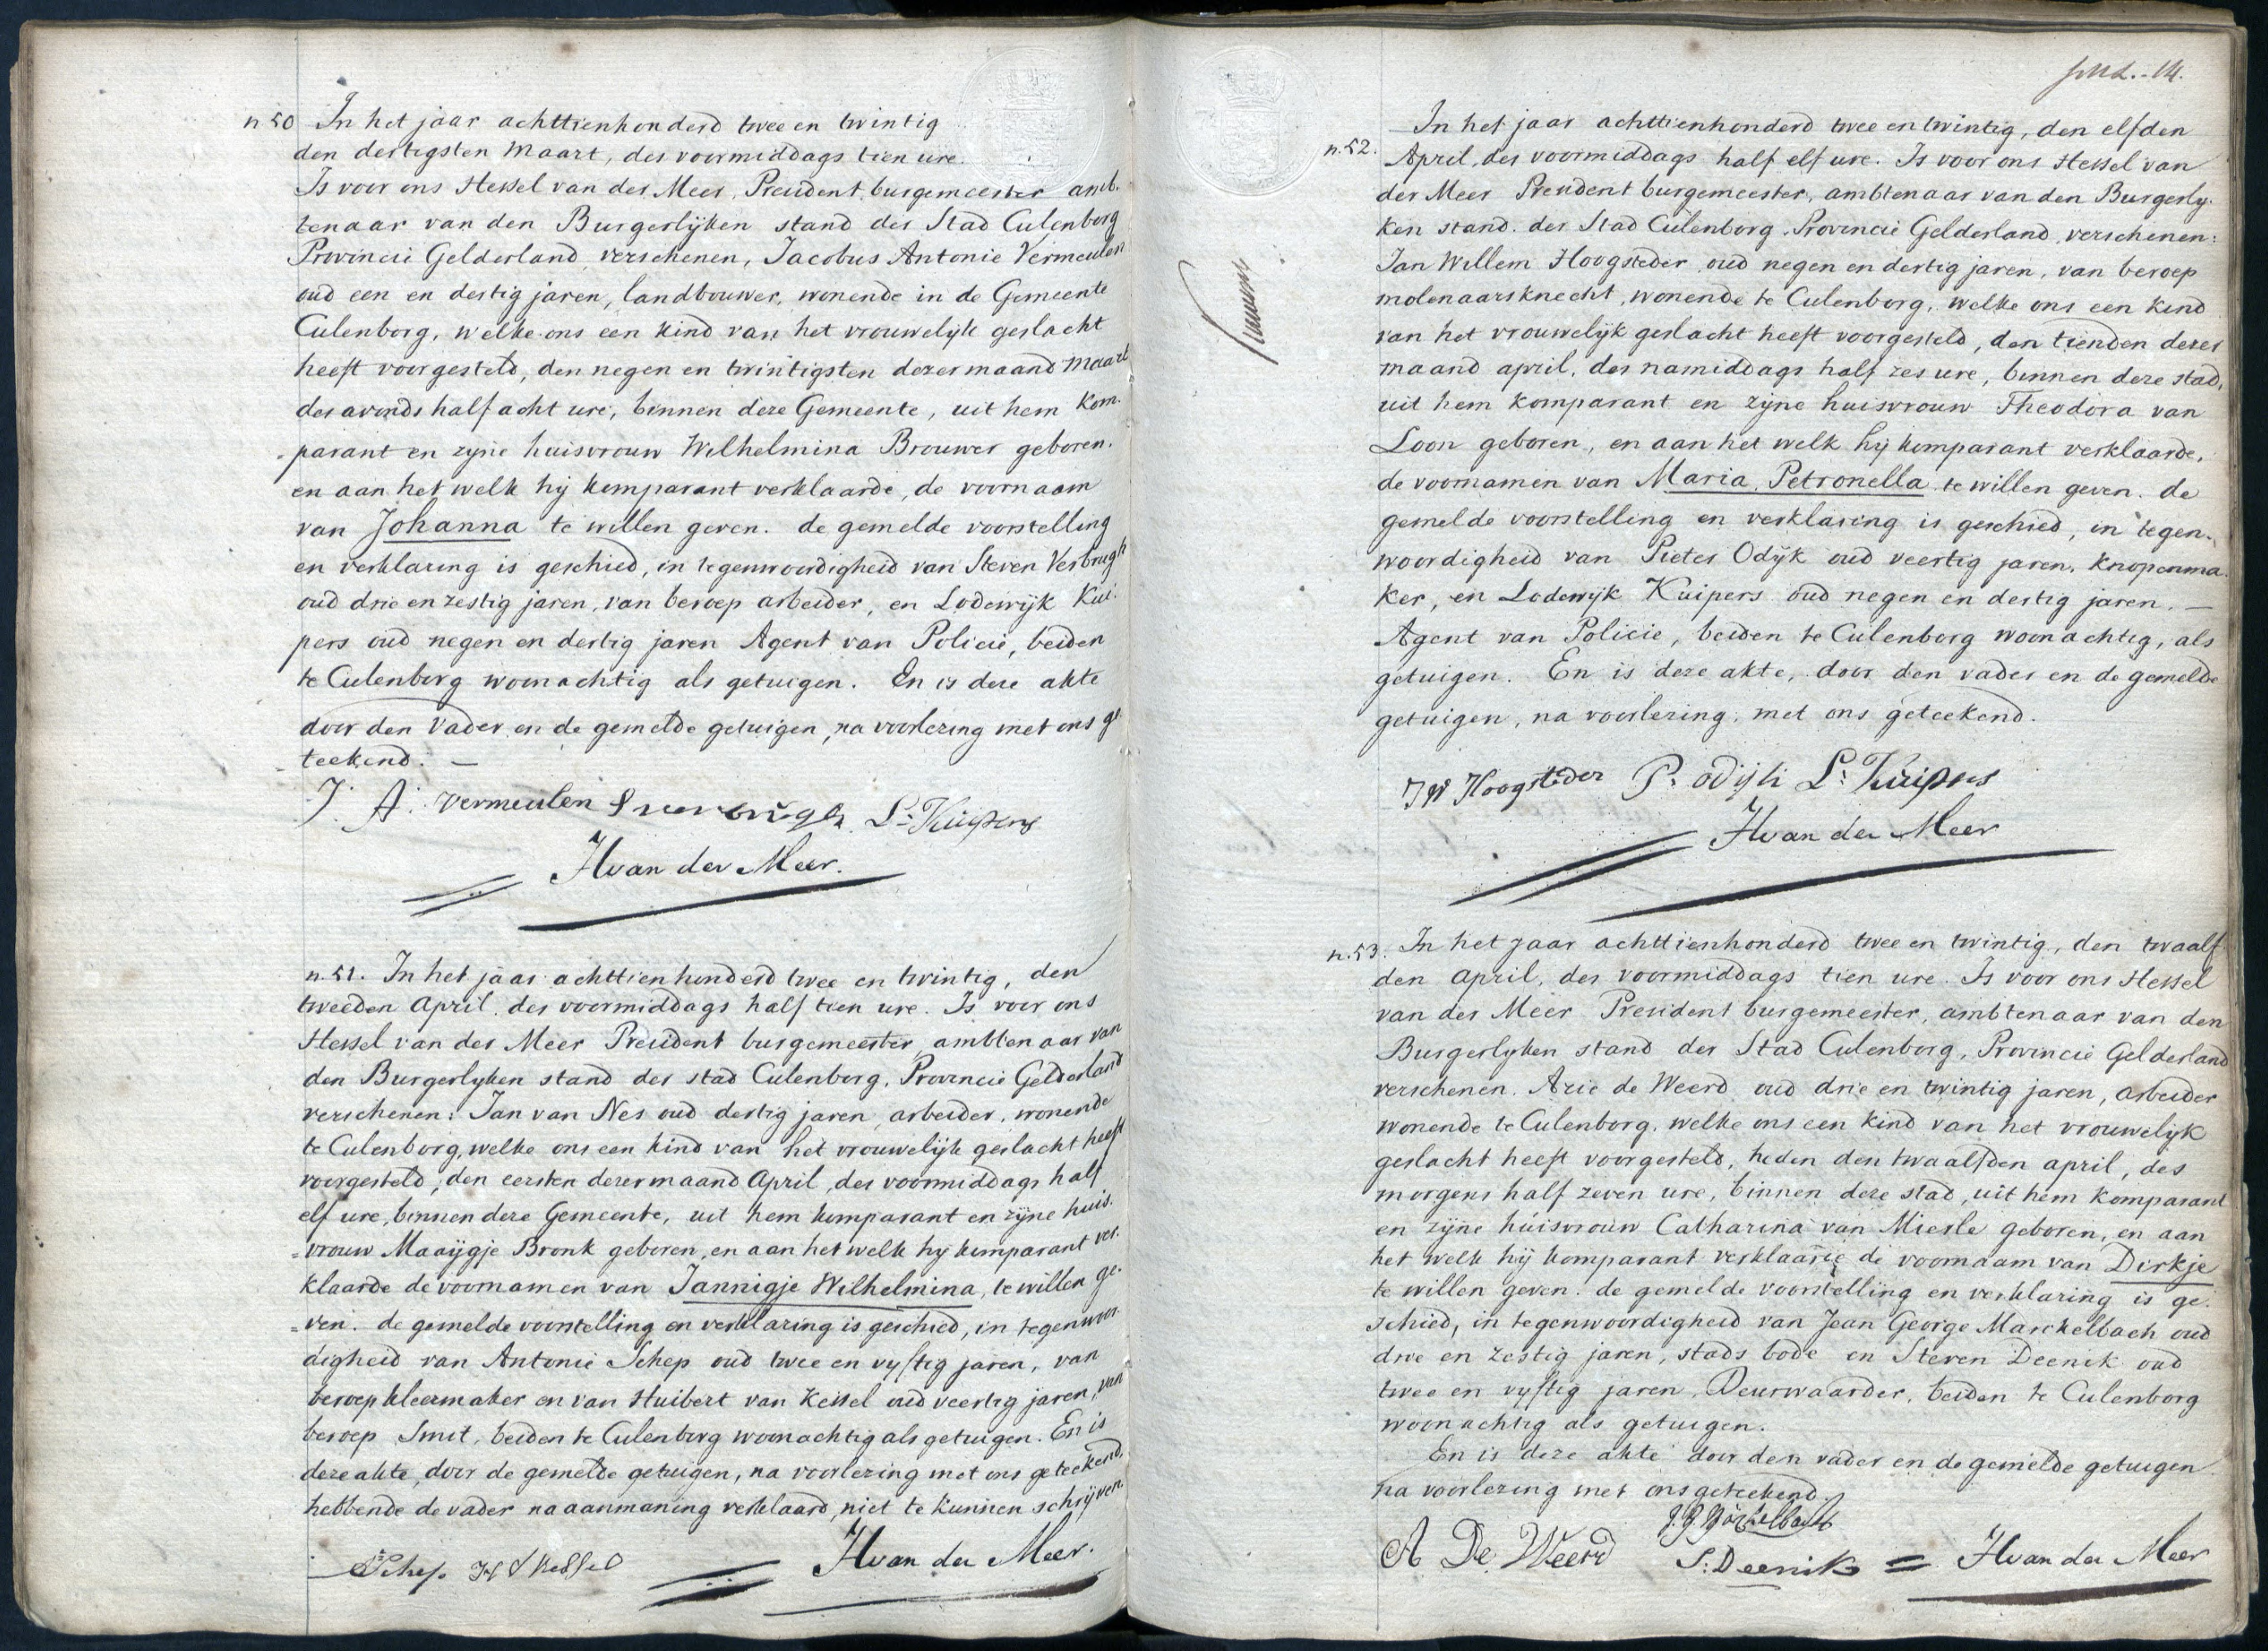 n 50 In het jaar achttienhonderd twee en twintig
den dertigsten Maart, des voormiddags tien ure.
Is voor ons Hessel van der Meer, President burgemeester amb.
tenaar van den Burgerlijken stand der Stad Culenborg
Provincie Gelderland, verschenen, Jacobus Antonie Vermeulen
oud een en dertig jaren, landbouwer, wonende in de Gemeente
Culenborg, welke ons een kind van het vrouwelijk geslacht
heeft voorgesteld, den negen en twintigsten dezer maand Maart
des avonds half acht ure, binnen deze Gemeente, uit hem kom.
parant en zijne huisvrouw Wilhelmina Brouwer geboren.
en aan het welk hij komparant verklaarde, de voornaam
van Johanna te willen geven. de gemelde voorstelling
en verklaring is geschied, in tegenwoordigheid van Steven Verbrugh
oud drie en zestig jaren, van beroep arbeider, en Lodewijk Kui.
pers oud negen en dertig jaren Agent van Policie, beiden
te Culenborg woonachtig als getuigen. En is deze akte
door den Vader en de gemelde getuigen, na voorlezing met ons ge.
teekend. —
J. A. Vermeulen S verbrugh L: Kuipers
H van der Meer.
n. 51. In het jaar achttienhonderd twee en twintig, den
tweeden April, des voormiddags half tien ure. Is voor ons
Hessel van der Meer President burgemeester, ambtenaar van
den Burgerlyken stand der stad Culenborg, Provincie Gelderland
verschenen: Jan van Nes oud dertig jaren, arbeider, wonende
te Culenborg, welke ons een kind van het vrouwelijk geslacht heeft
voorgesteld, den eersten dezer maand April, des voormiddags half
elf ure, binnen deze Gemeente, uit hem komparant en zijne huis.
vrouw Maaijgje Bronk geboren, en aan het welk hy komparant ver.
klaarde de voornamen van Jannigje Wilhelmina, te willen ge.
ven. de gemelde voorstelling en verklaring is geschied, in tegenwoor.
digheid van Antonie Schep oud twee en vyftig jaren, van
beroep kleermaker en van Huibert van Kessel oud veertig jaren, van
beroep Smit, beiden te Culenborg woonachtig als getuigen. En is
deze akte, door de gemelde getuigen, na voorlezing met ons geteekend,
hebbende de vader na aanmaning verklaard, niet te kunnen schrijven.
A Schep H V Kessel H van der Meer.
n. 52. In het jaar achttienhonderd twee en twintig, den elfden
April, des voormiddags half elf ure. Is voor ons Hessel van
der Meer President burgemeester, ambtenaar van den Burgerly.
ken stand der Stad Culenborg, Provincie Gelderland, verschenen:
Jan Willem Hoogsteder, oud negen en dertig jaren, van beroep
molenaarsknecht, wonende te Culenborg, welke ons een kind
van het vrouwelijk geslacht heeft voorgesteld, den tienden dezer
maand april, des namiddags half zes ure, binnen deze stad,
uit hem komparant en zijne huisvrouw Theodora van
Loon geboren, en aan het welk hij komparant verklaarde,
de voornamen van Maria Petronella te willen geven. de
gemelde voorstelling en verklaring is geschied, in tegen.
woordigheid van Pieter Odijk oud veertig jaren, knopenma.
ker, en Lodewijk Kuipers oud negen en dertig jaren. —
Agent van Policie, beiden te Culenborg woonachtig, als
getuigen. En is deze akte, door den vader en de gemelde
getuigen, na voorlezing, met ons geteekend.
JW Hoogsteder P: odijk L: Kuipers
H van der Meer
n. 53. In het jaar achttienhonderd twee en twintig, den twaalf
den april, des voormiddags tien ure. Is voor ons Hessel
van der Meer President burgemeester, ambtenaar van den
Burgerlyken stand der Stad Culenborg, Provincie Gelderland
verschenen. Arie de Weerd oud drie en twintig jaren, arbeider
wonende te Culenborg, welke ons een kind van het vrouwelijk
geslacht heeft voorgesteld, heden den twaalfden april, des
morgens half zeven ure, binnen deze stad, uit hem komparant
en zijne huisvrouw Catharina van Mierle geboren, en aan
het welk hij komparant verklaarde de voornaam van Dirkje
te willen geven. de gemelde voorstelling en verklaring is ge.
schied, in tegenwoordigheid van Jean George Marckelbach oud
drie en zestig jaren, stads bode en Steven Deenik oud
twee en vyftig jaren, Deurwaarder, beiden te Culenborg
woonachtig als getuigen.
En is deze akte door den vader en de gemelde getuigen
na voorlezing met ons geteekend.
A De Weerd S: Deenik = H van der Meer